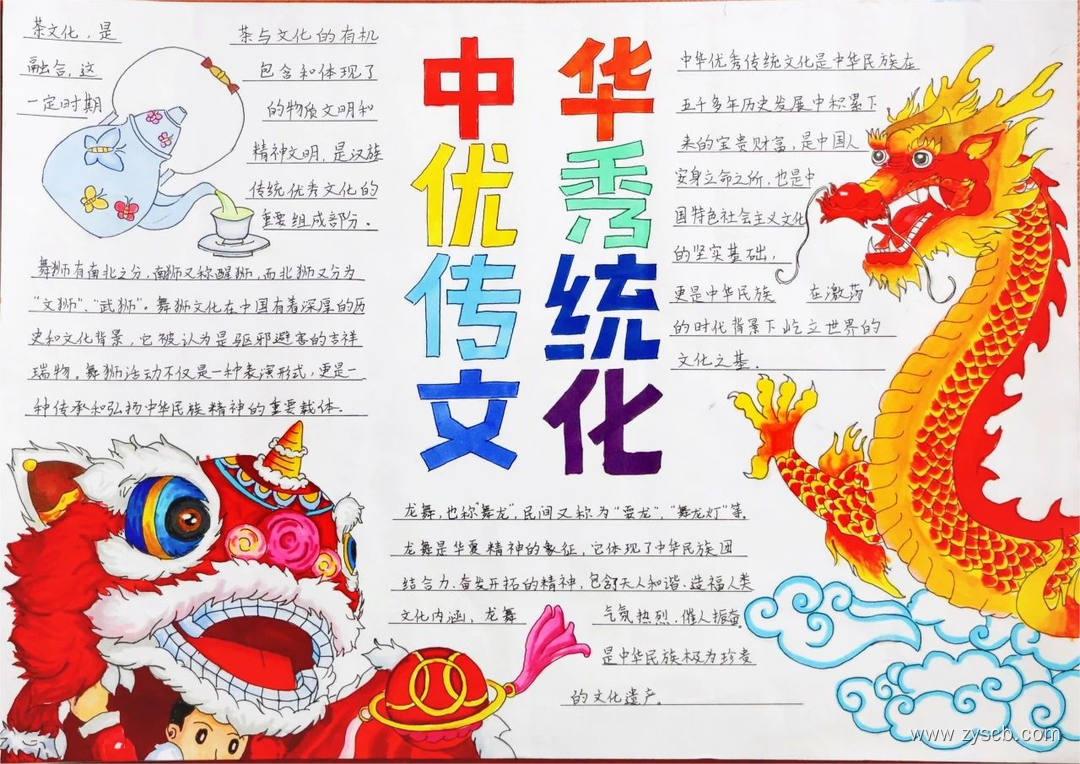 中华
优秀
传统
文化
茶文化，是
茶与文化的有机
融合，这
包含和体现了
一定时期
的物质文明和
精神文明，是汉族
传统优秀文化的
重要组成部分。
舞狮有南北之分，南狮又称醒狮，而北狮又分为
“文狮”、“武狮”。舞狮文化在中国有着深厚的历
史和文化背景，它被认为是驱邪避害的吉祥
瑞物。舞狮活动不仅是一种表演形式，更是一
种传承和弘扬中华民族精神的重要载体。
中华优秀传统文化是中华民族在
五千多年历史发展中积累下
来的宝贵财富，是中国人
安身立命之所，也是中
国特色社会主义文化
的坚实基础，
更是中华民族 在激荡
的时代背景下屹立世界的
文化之基.
龙舞，也称“舞龙”，民间又称为“耍龙”，“舞龙灯”等。
龙舞是华夏精神的象征，它体现了中华民族团
结合力、奋发开拓的精神，包含了天人和谐、造福人类
文化内涵，龙舞 气氛热烈，催人振奋。
是中华民族极为珍贵
的文化遗产。
www.zyseb.com